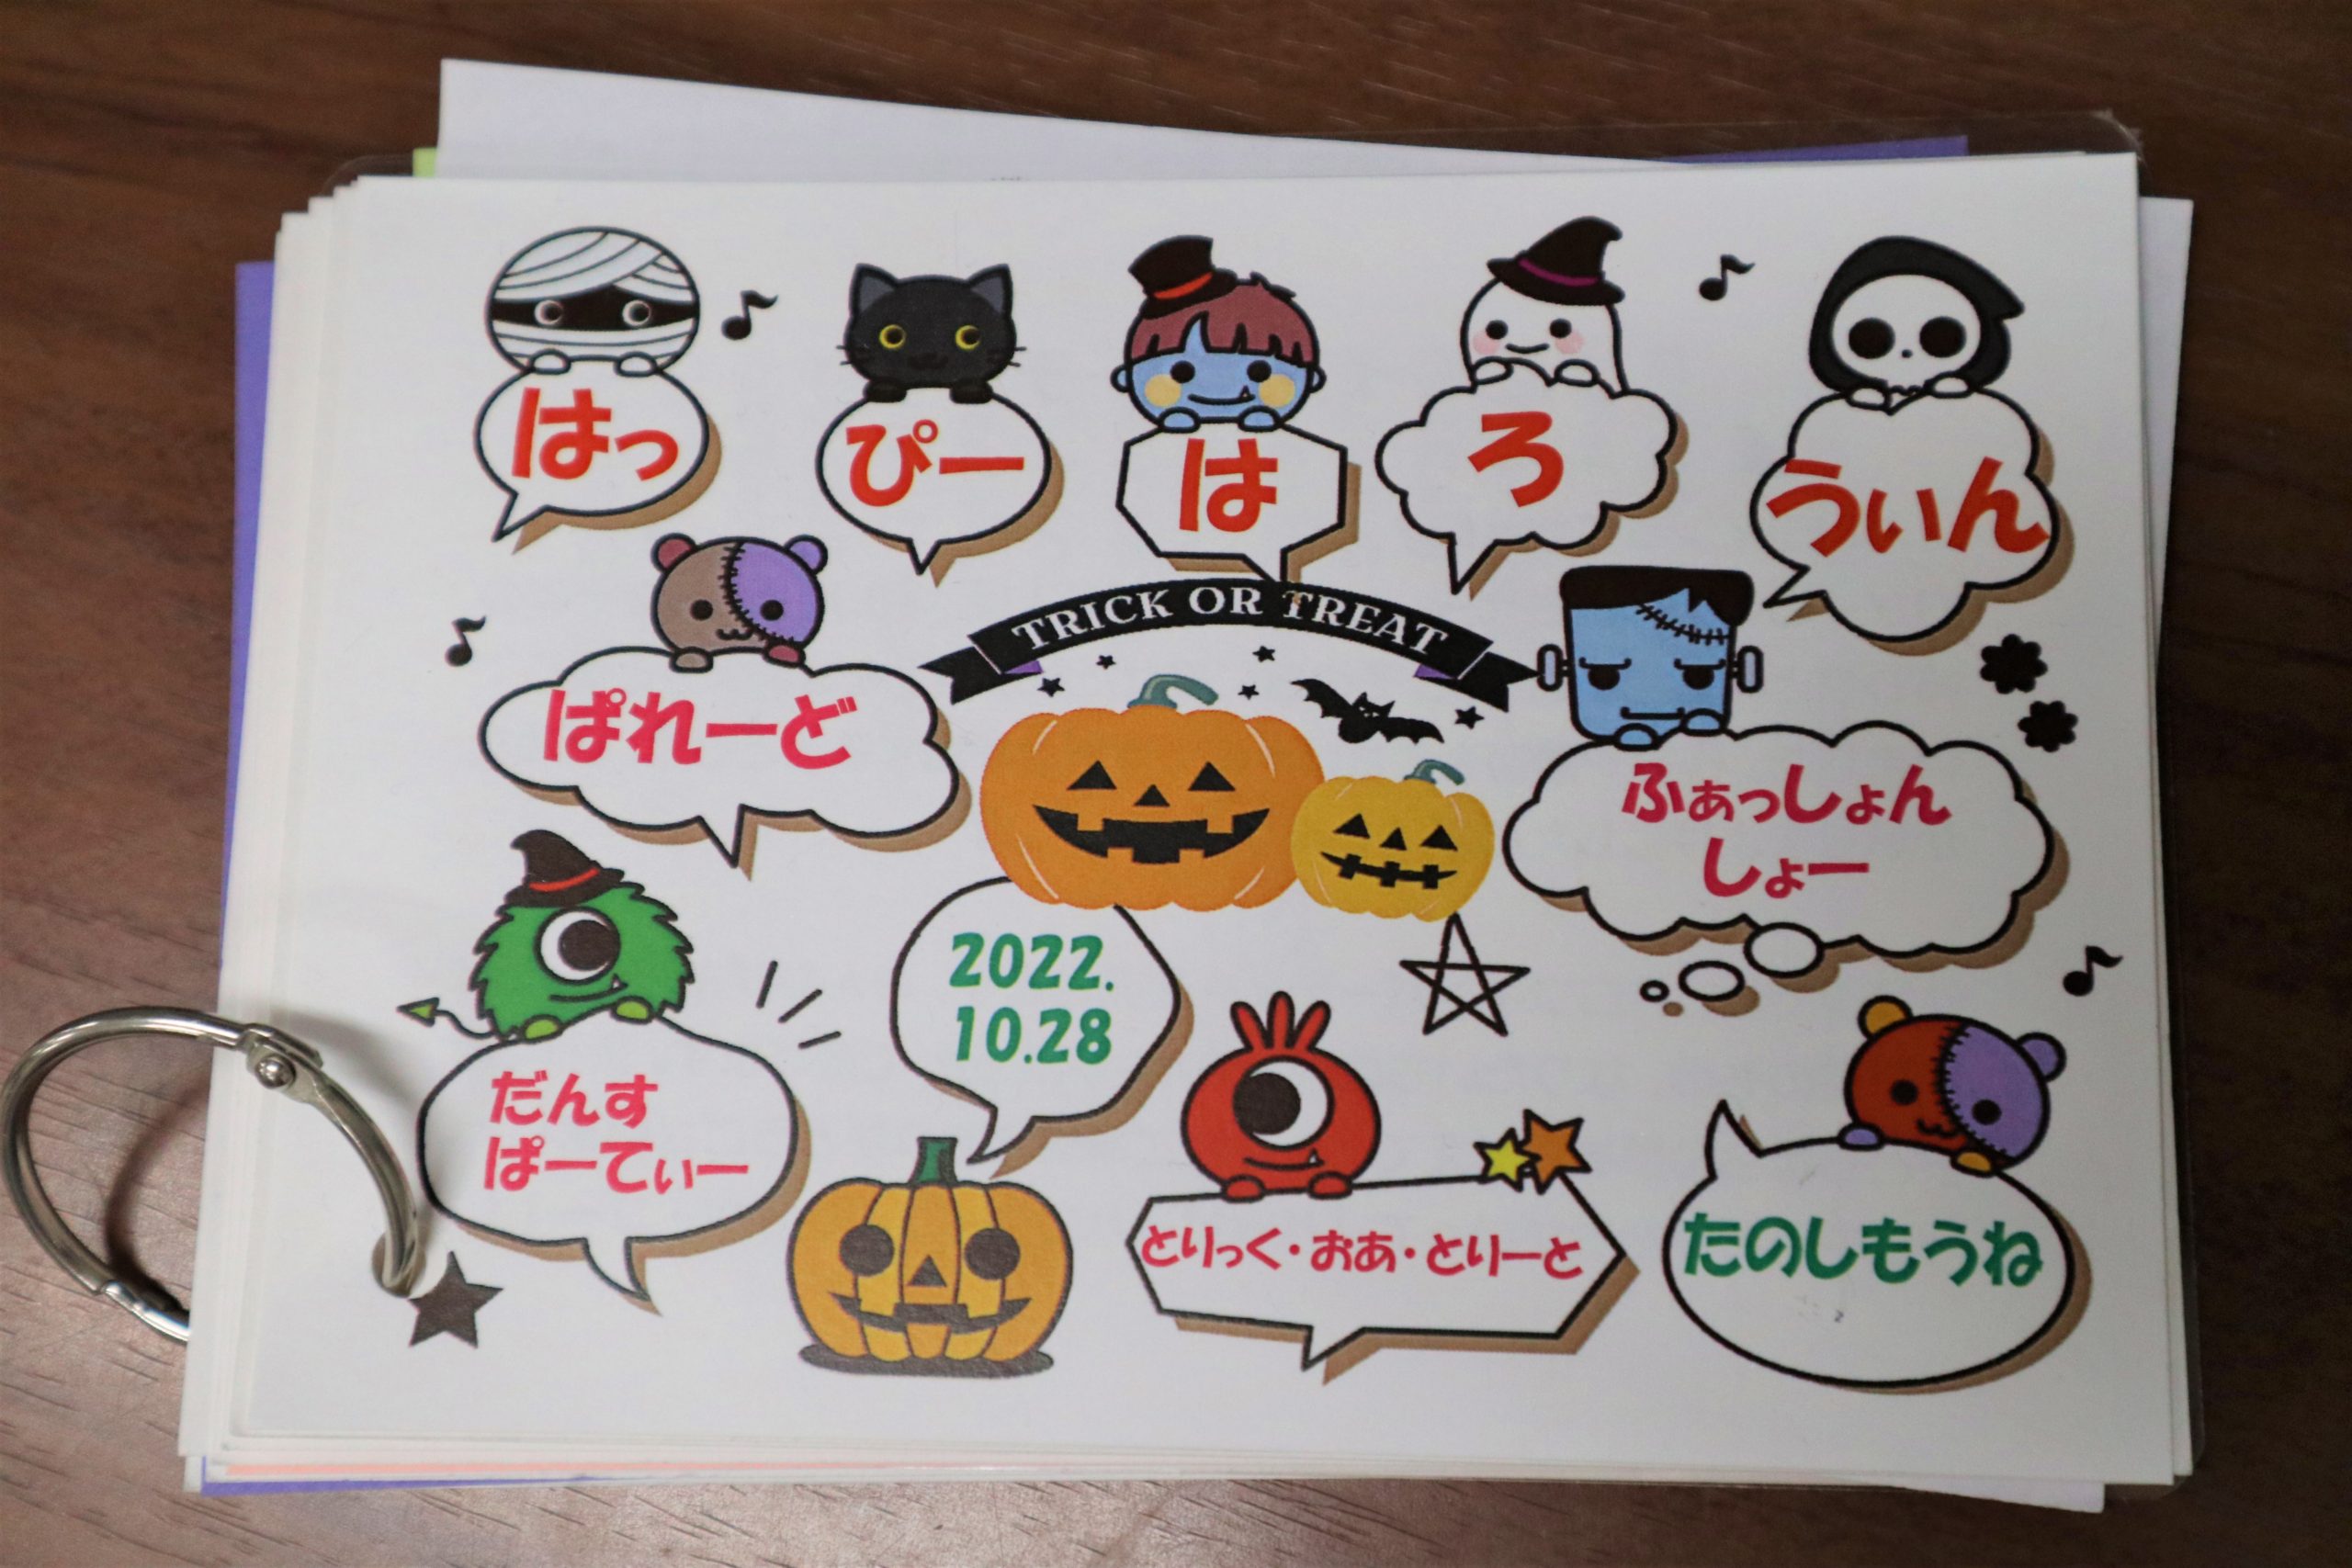 はっ
ぴー
は
ろ
うぃん
TRICK OR TREAT
ぱれーど
ふぁっしょん
しょー
2022.
10.28
だんす
ぱーてぃー
とりっく・おあ・とりーと
たのしもうね